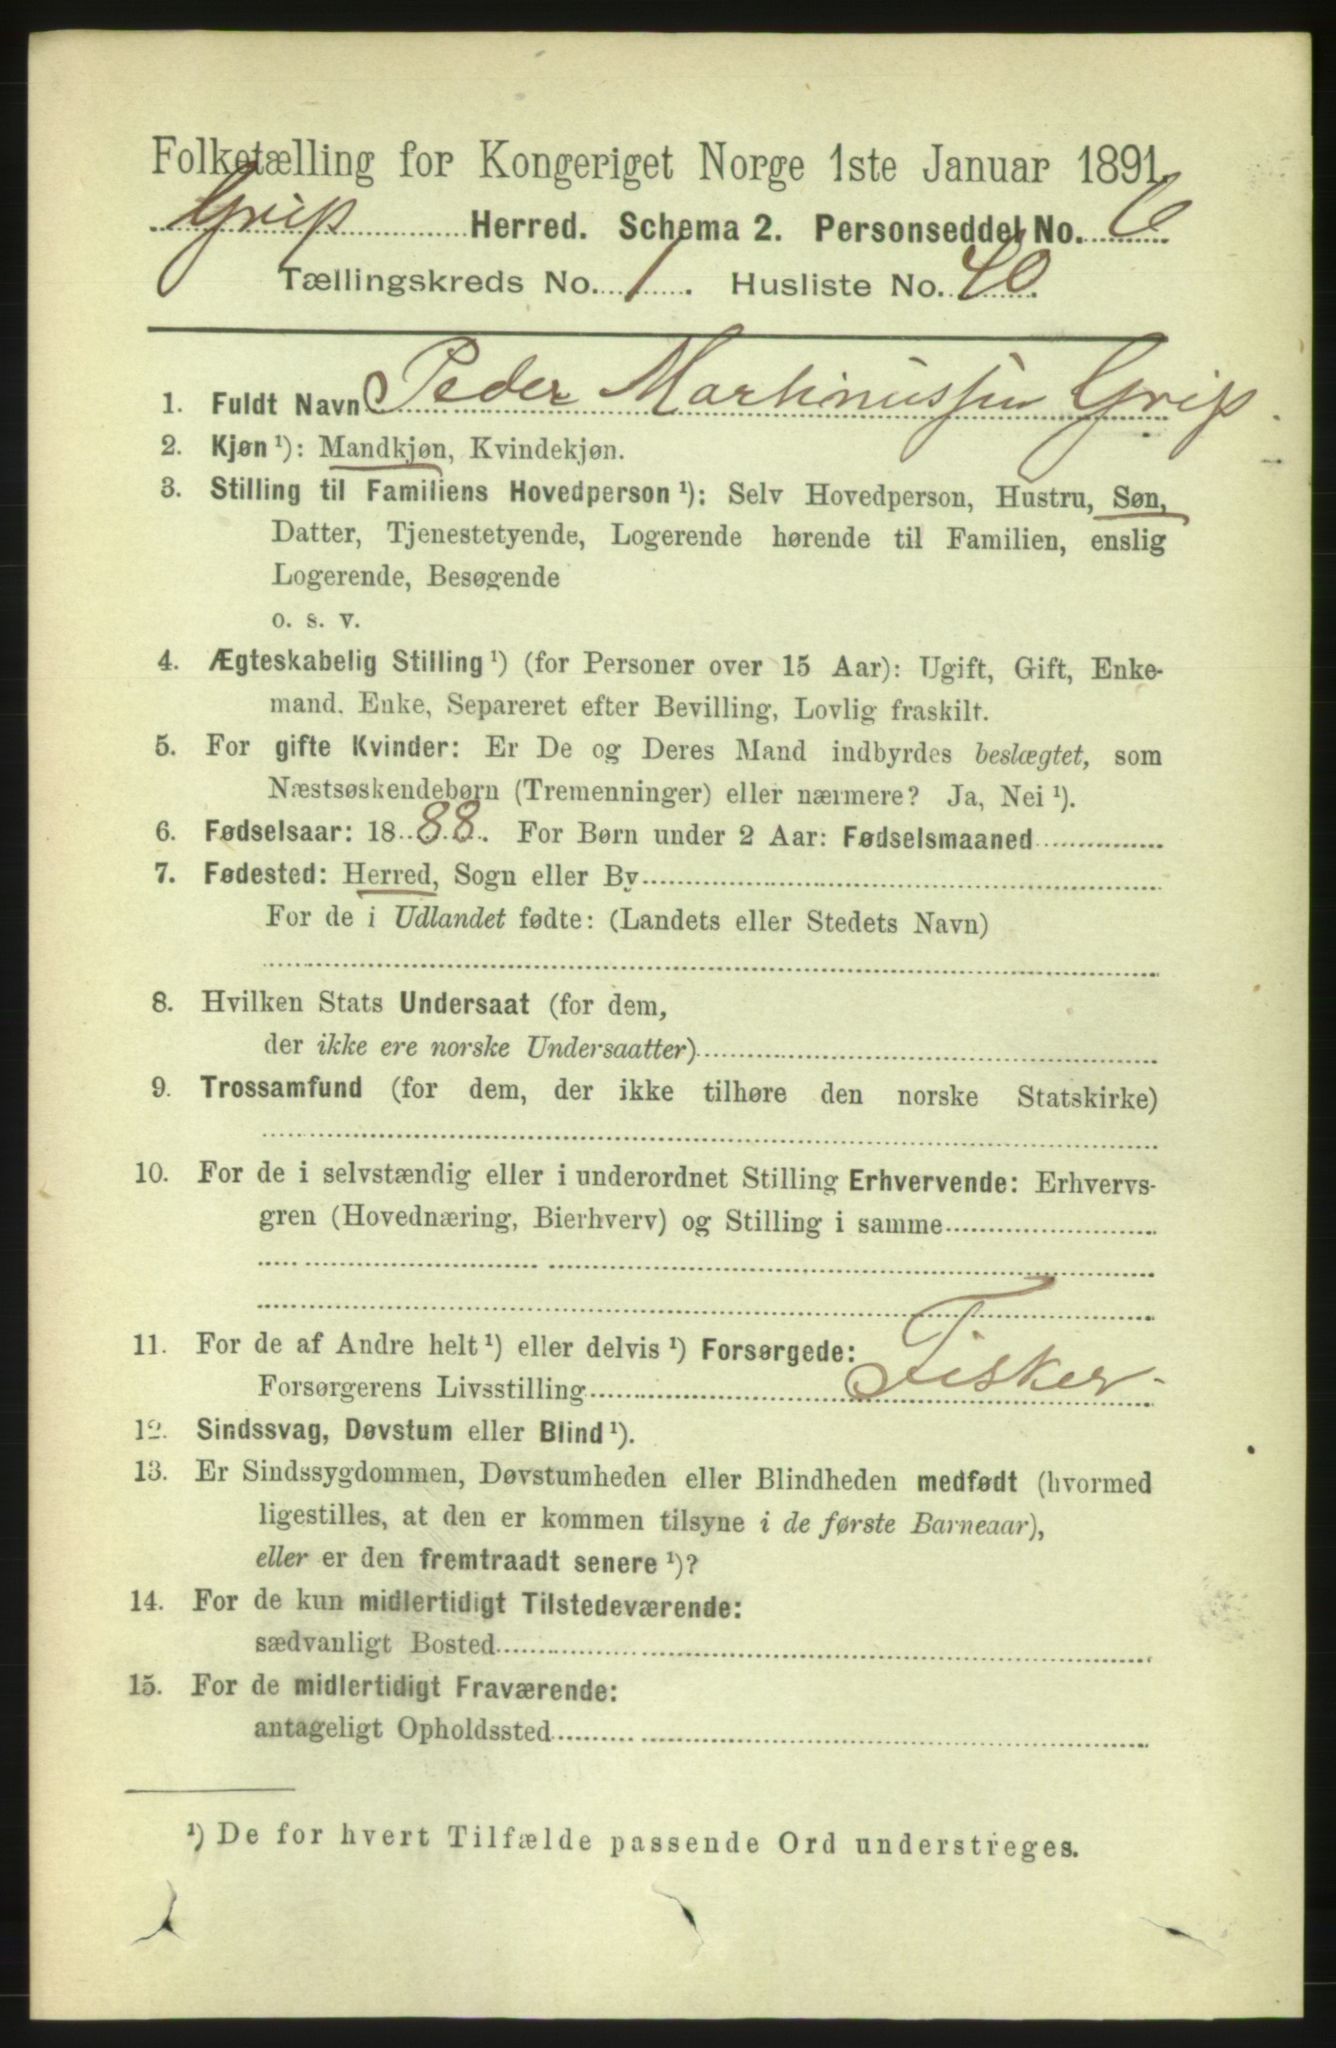 Folketælling for Kongeriget Norge 1ste Januar 1891.
Grip Herred. Schema 2. Personseddel No. 6
Tællingskreds No. 1. Husliste No. 40.
1. Fuldt Navn Peder Martinussen Grip
2. Kjøn ¹): Mandkjøn, Kvindekjøn.
3. Stilling til Familiens Hovedperson ¹): Selv Hovedperson, Hustru, Søn,
Datter, Tjenestetyende, Logerende hørende til Familien, enslig
Logerende, Besøgende
o. s. v.
4. Ægteskabelig Stilling ¹) (for Personer over 15 Aar): Ugift, Gift, Enke-
mand. Enke, Separeret efter Bevilling, Lovlig fraskilt.
5. For gifte Kvinder: Er De og Deres Mand indbyrdes beslægtet, som
Næstsøskendebørn (Tremenninger) eller nærmere? Ja, Nei ¹).
6. Fødselsaar: 1888. For Børn under 2 Aar: Fødselsmaaned
7. Fødested: Herred, Sogn eller By
For de i Udlandet fødte: (Landets eller Stedets Navn)
8. Hvilken Stats Undersaat (for dem,
der ikke ere norske Undersaatter)
9. Trossamfund (for dem, der ikke tilhøre den norske Statskirke)
10. For de i selvstændig eller i underordnet Stilling Erhvervende: Erhvervs-
gren (Hovednæring, Bierhverv) og Stilling i samme
11. For de af Andre helt ¹) eller delvis ¹) Forsørgede:
Forsørgerens Livsstilling Fisker
12. Sindssvag, Døvstum eller Blind ¹).
13. Er Sindssygdommen, Døvstumheden eller Blindheden medfødt (hvormed
ligestilles, at den er kommen tilsyne i de første Barneaar),
eller er den fremtraadt senere ¹)?
14. For de kun midlertidigt Tilstedeværende:
sædvanligt Bosted
15. For de midlertidigt Fraværende:
antageligt Opholdssted
¹) De for hvert Tilfælde passende Ord understreges.